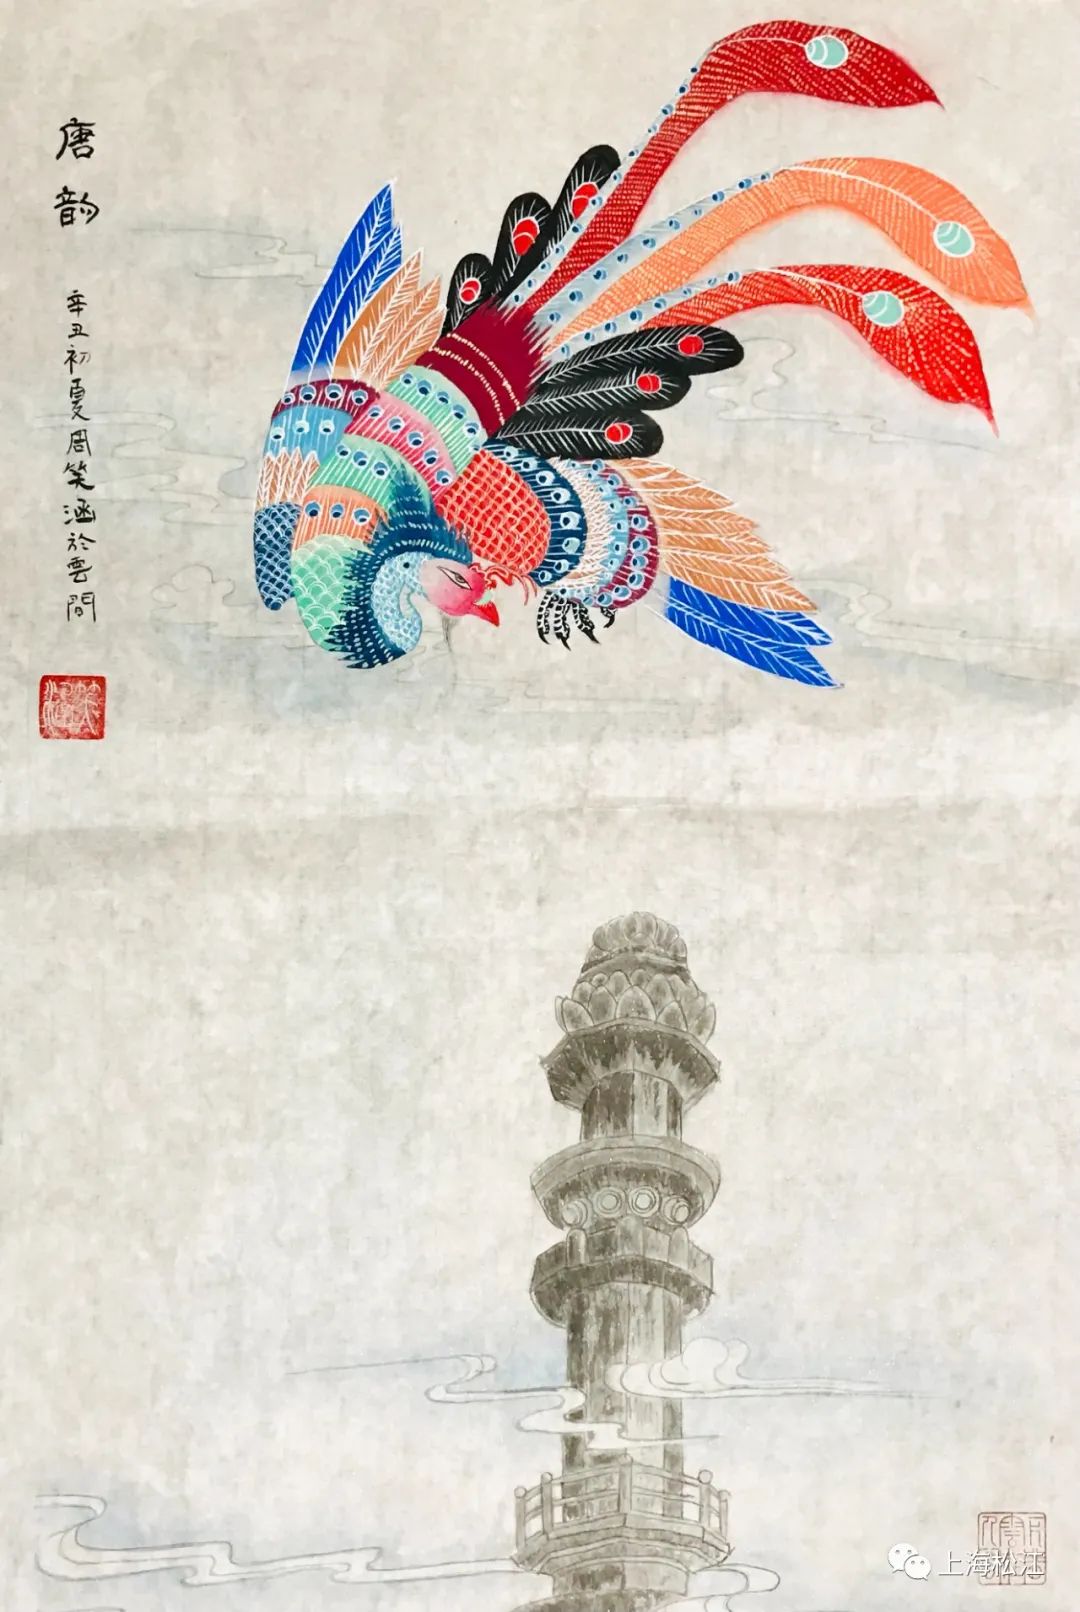 唐韵
辛丑初夏周笑涵於雲間
笑涵
上海松江